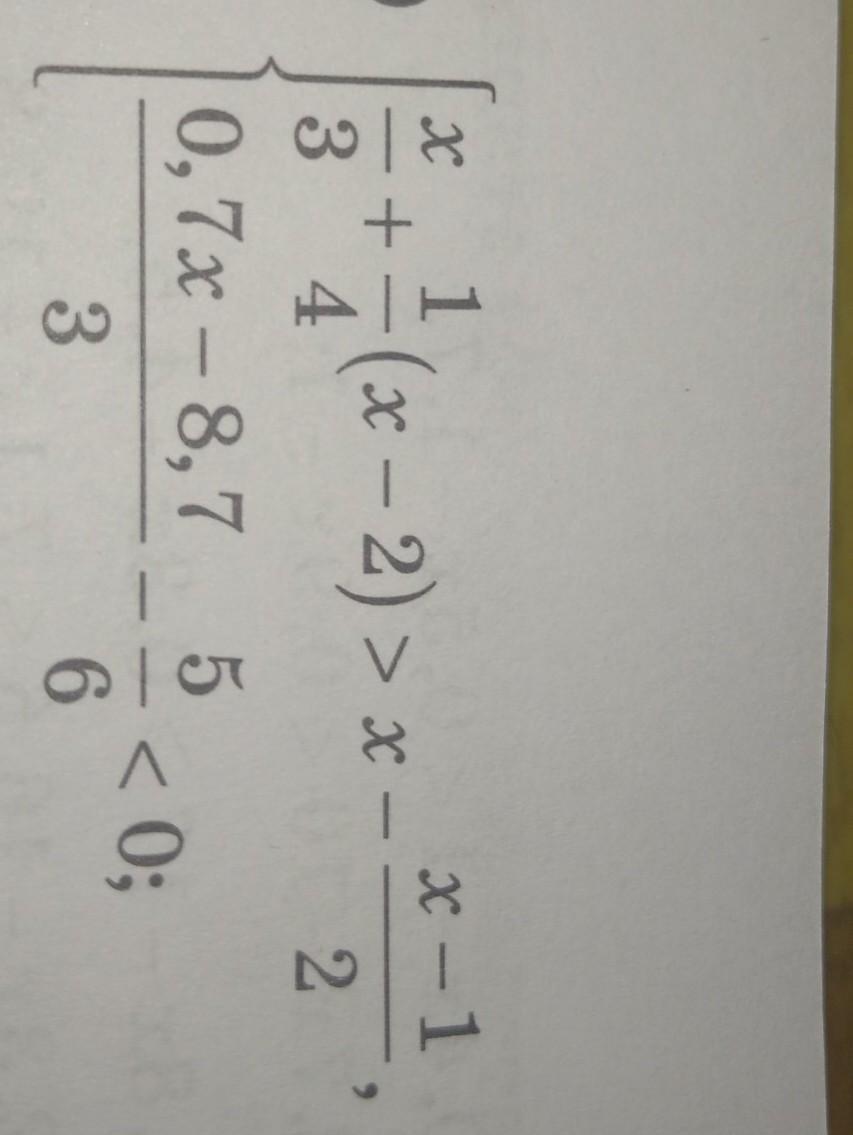 x/3 + 1/4(x − 2) > x − (x − 1)/2,
(0,7x − 8,7)/3 − 5/6 < 0;